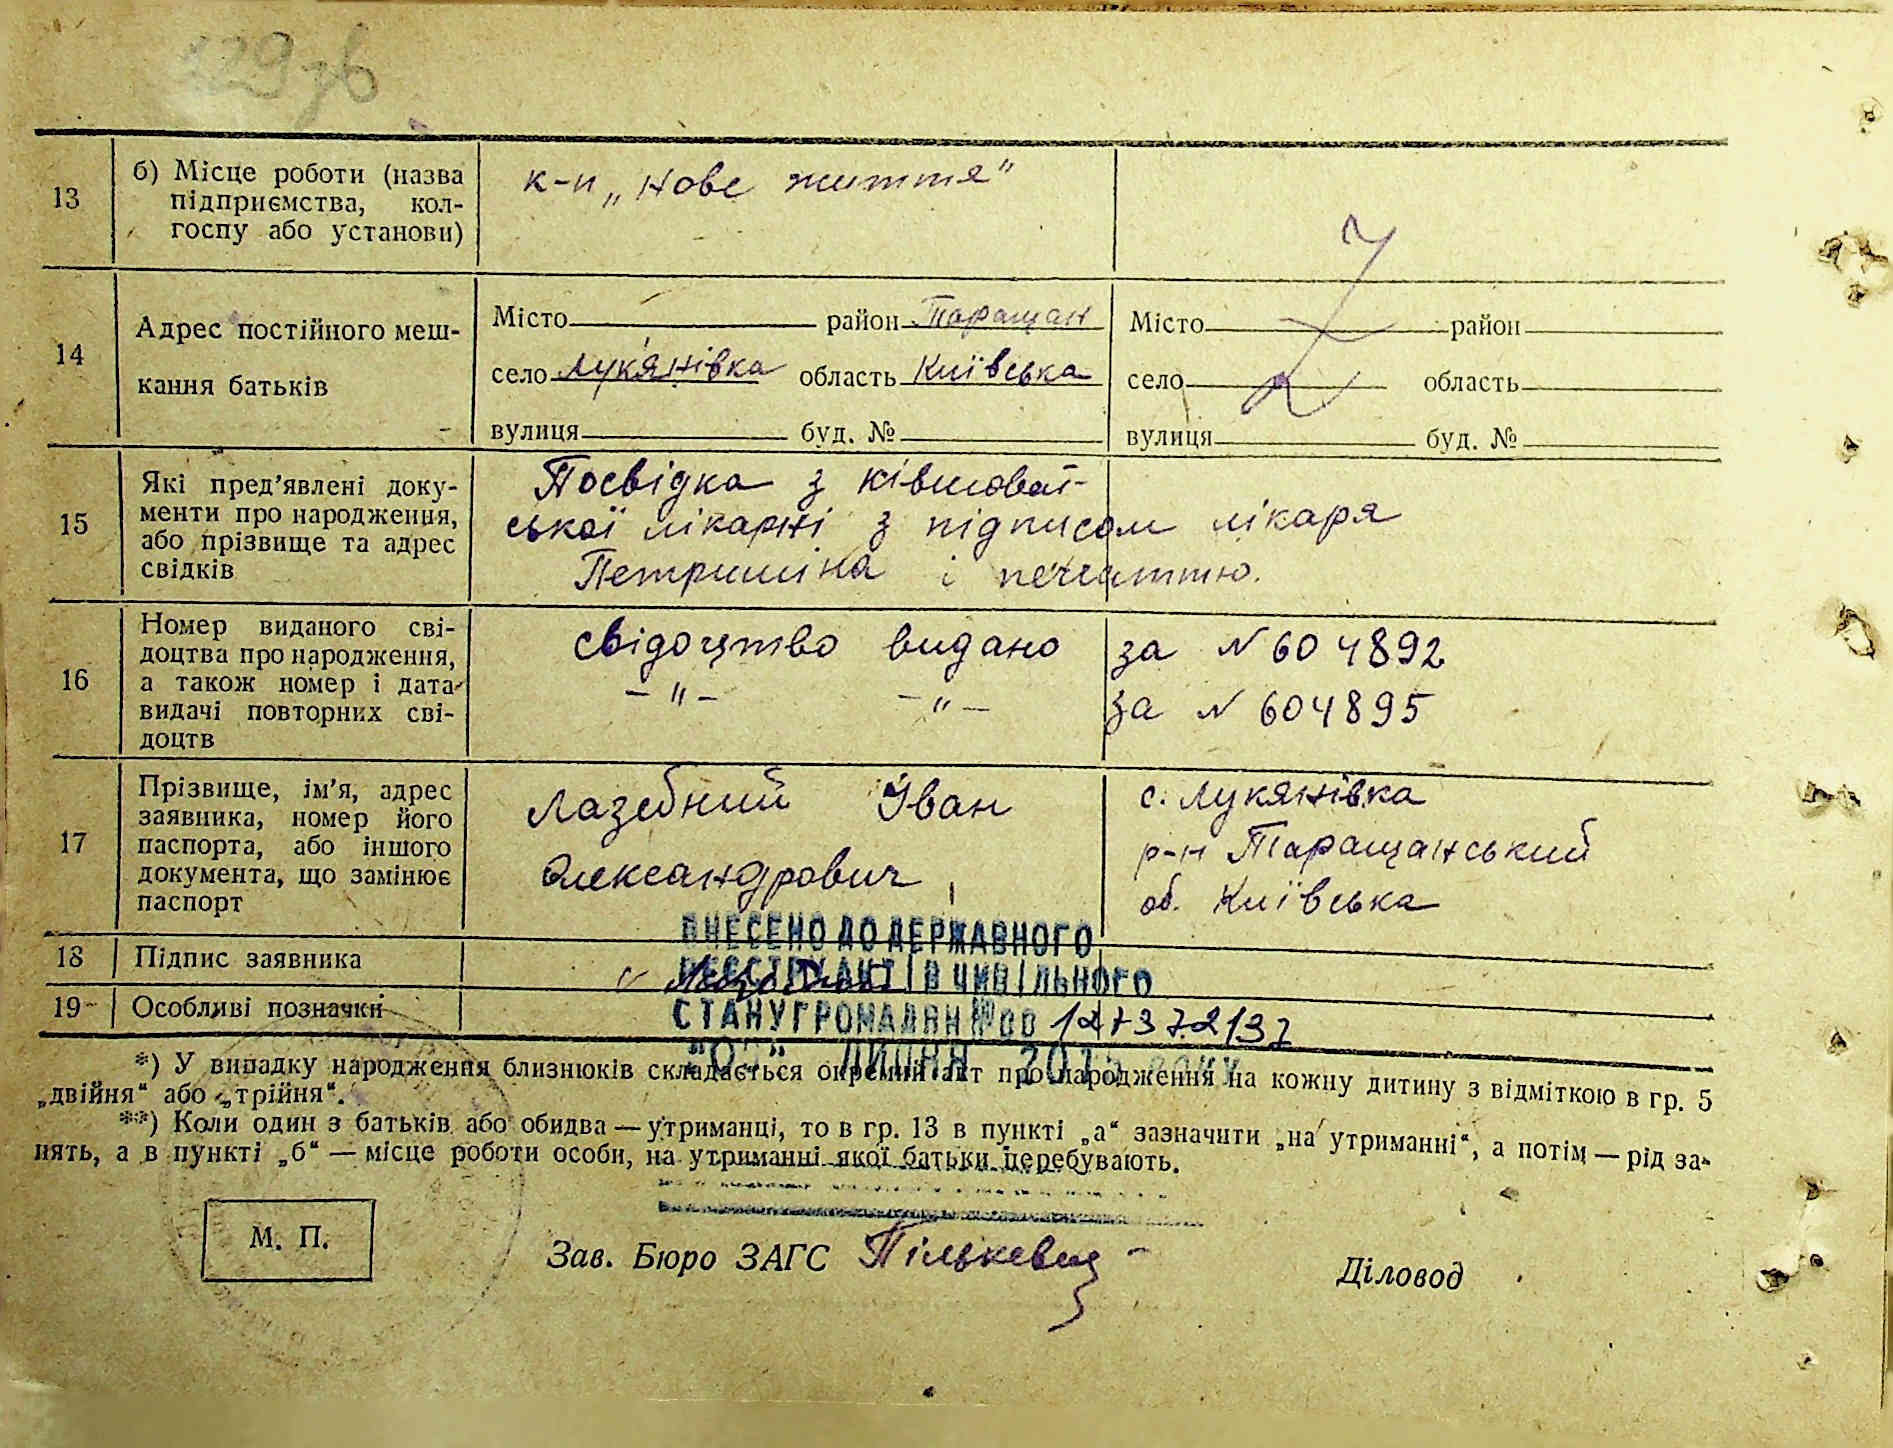 129 зв
13
б) Місце роботи (назва
підприємства, кол-
госпу або установи)
к-п „Нове життя"
14
Адрес постійного меш-
кання батьків
Місто район Таращан
село Лук'янівка область Київська
вулиця буд. №
Місто район
село область
вулиця буд. №
15
Які пред'явлені доку-
менти про народження,
або прізвище та адрес
свідків
Посвідка з Ківшоват-
ської лікарні з підписом лікаря
Петришіна і печаттю.
16
Номер виданого сві-
доцтва про народження,
а також номер і дата
видачі повторних сві-
доцтв
свідоцтво видано за N 604892
— " — — " — за N 604895
17
Прізвище, ім'я, адрес
заявника, номер його
паспорта, або іншого
документа, що замінює
паспорт
Лазебний Іван
Олександрович
с. Лукянівка
р-н Таращанський
об. Київська
18 Підпис заявника
19 Особливі позначки
ВНЕСЕНО ДО ДЕРЖАВНОГО
РЕЄСТРУ АКТІВ ЦИВІЛЬНОГО
СТАНУ ГРОМАДЯН №00
липня року
*) У випадку народження близнюків складається окремий акт про народження на кожну дитину з відміткою в гр. 5
„двійня“ або „трійня“.
**) Коли один з батьків або обидва — утриманці, то в гр. 13 в пункті „а“ зазначити „на утриманні“, а потім — рід за-
нять, а в пункті „б“ — місце роботи особи, на утриманні якої батьки перебувають.
М. П.
Зав. Бюро ЗАГС Пількевич
Діловод